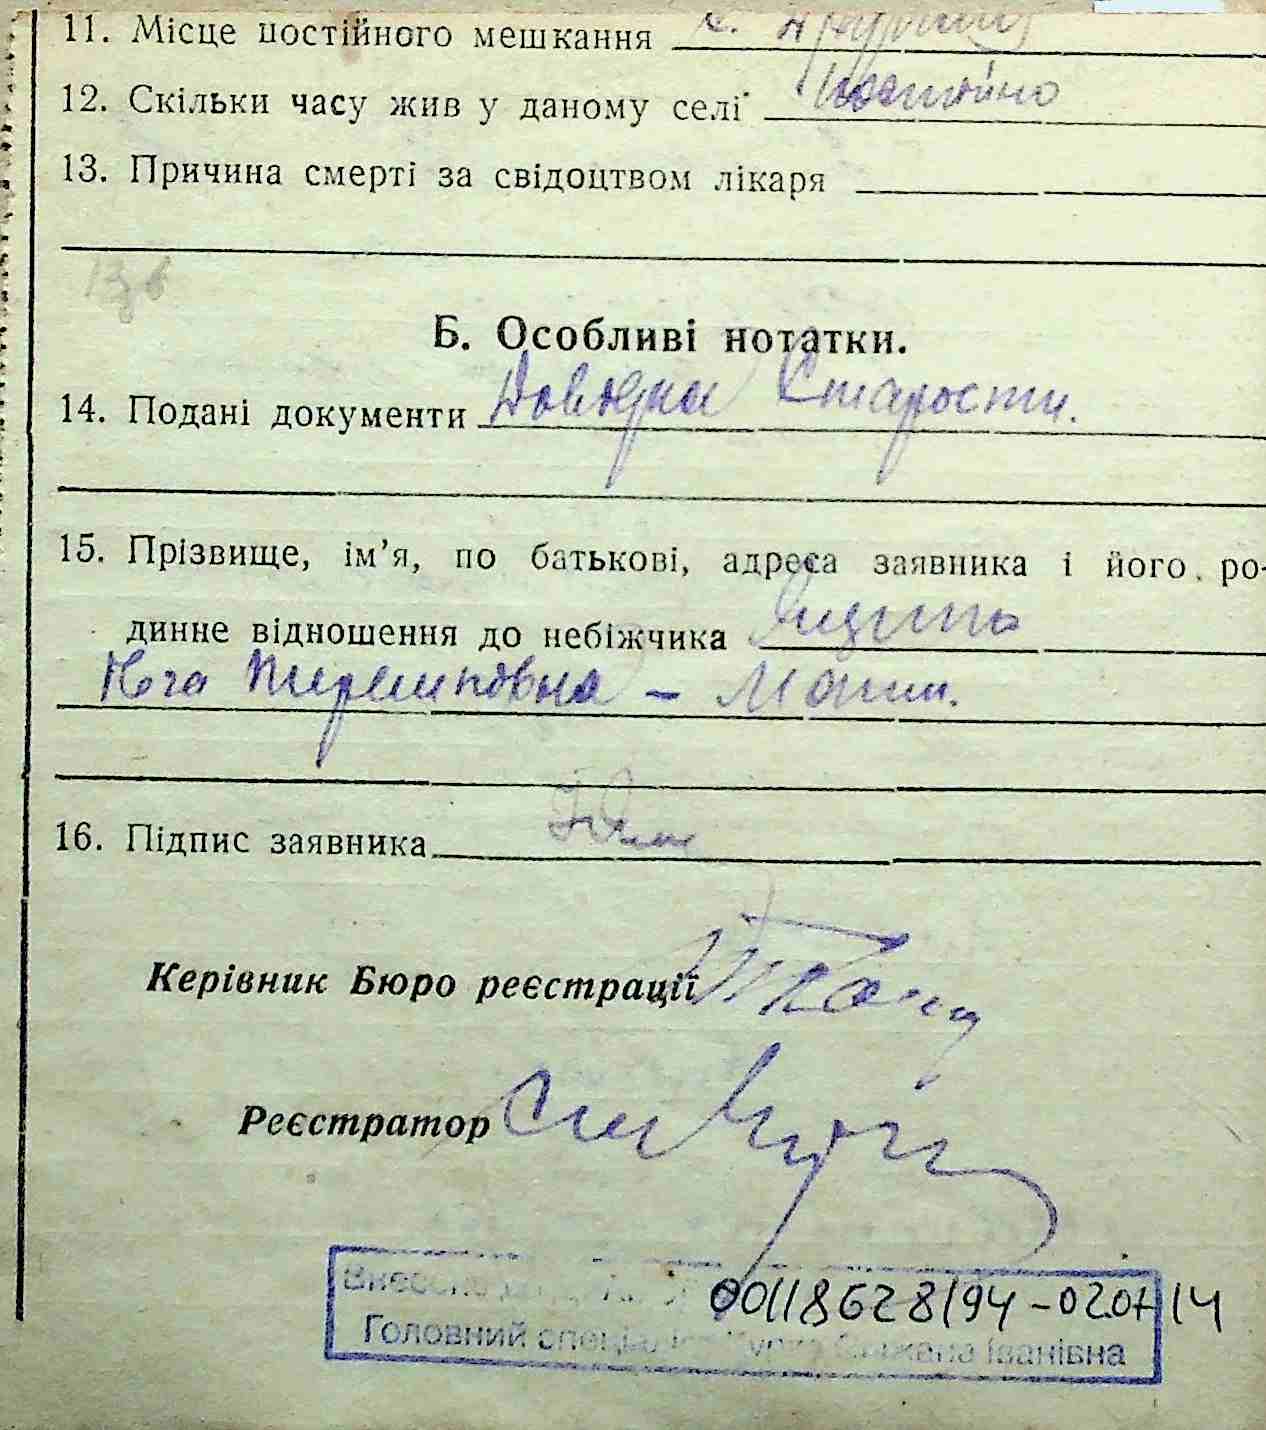 11. Місце постійного мешкання с.
12. Скільки часу жив у даному селі постійно
13. Причина смерті за свідоцтвом лікаря
Б. Особливі нотатки.
14. Подані документи Довідка Старости.
15. Прізвище, ім’я, по батькові, адреса заявника і його ро-
динне відношення до небіжчика
- Мати.
16. Підпис заявника
Керівник Бюро реєстрації
Реєстратор
00118628194-02.07.14
Головний спеціаліст Іванівна